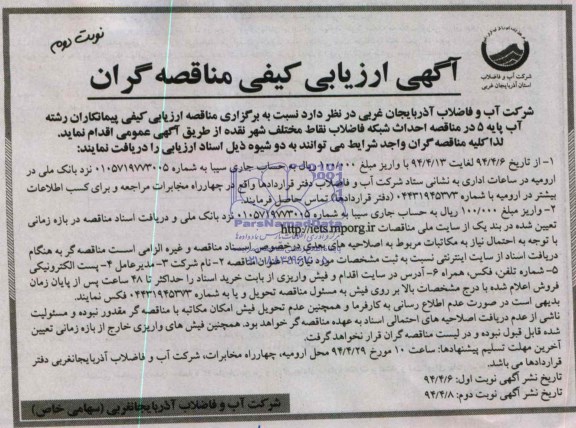 نوبت دوم
شرکت آب و فاضلاب
استان آذربایجان غربی
آگهی ارزیابی کیفی مناقصه گران
شرکت آب و فاضلاب آذربایجان غربی در نظر دارد نسبت به برگزاری مناقصه ارزیابی کیفی پیمانکاران رشته
آب پایه ۵ در مناقصه احداث شبکه فاضلاب نقاط مختلف شهر نقده از طریق آگهی عمومی اقدام نماید.
لذا کلیه مناقصه گران واجد شرایط می توانند به دو شیوه ذیل اسناد ارزیابی را دریافت نمایند:
۱- از تاریخ ۹۴/۴/۶ لغایت ۹۴/۴/۱۳ با واریز مبلغ ۱۰۰/۰۰۰ ریال به حساب جاری سیبا به شماره ۰۱۰۵۷۱۹۷۷۳۰۰۵ نزد بانک ملی در
ارومیه در ساعات اداری به نشانی ستاد شرکت آب و فاضلاب دفتر قراردادها واقع در چهارراه مخابرات مراجعه و برای کسب اطلاعات
بیشتر در ارومیه با شماره ۰۴۴۳۱۹۴۵۳۷۳ (دفتر قراردادها) تماس حاصل فرمایند.
۲- واریز مبلغ ۱۰۰/۰۰۰ ریال به حساب جاری سیبا به شماره ۰۱۰۵۷۱۹۷۷۳۰۰۵ نزد بانک ملی و دریافت اسناد مناقصه در بازه زمانی
تعیین شده در بند یک از سایت ملی مناقصات http://iets.mporg.ir
با توجه به احتمال نیاز به مکاتبات مربوط به اصلاحیه های بعدی درخصوص اسناد مناقصه و غیره الزامی است مناقصه گر به هنگام
دریافت اسناد از سایت اینترنتی نسبت به ثبت مشخصات مورد نیاز ۱- عنوان مناقصه ۲- نام شرکت ۳- مدیرعامل ۴- پست الکترونیکی
۵- شماره تلفن، فکس، همراه ۶- آدرس در سایت اقدام و فیش واریزی از بابت خرید اسناد را حداکثر تا ۴۸ ساعت پس از پایان زمان
فروش اعلام شده با درج مشخصات بالا بر روی فیش به مسئول مناقصه تحویل و یا به شماره ۰۴۴۳۱۹۴۵۳۷۳ فکس نمایند.
بدیهی است در صورت عدم اطلاع رسانی به کارفرما و همچنین عدم تحویل فیش امکان مکاتبه با مناقصه گر مقدور نبوده و مسئولیت
ناشی از عدم دریافت اصلاحیه های احتمالی اسناد به عهده مناقصه گر خواهد بود. همچنین فیش های واریزی خارج از بازه زمانی تعیین
شده قابل قبول نبوده و در لیست مناقصه گران قرار نخواهد گرفت.
آخرین مهلت تسلیم پیشنهادها: ساعت ۱۰ مورخ ۹۴/۴/۲۹ محل ارومیه، چهارراه مخابرات، شرکت آب و فاضلاب آذربایجانغربی دفتر
قراردادها می باشد.
تاریخ نشر آگهی نوبت اول: ۹۴/۴/۶
تاریخ نشر آگهی نوبت دوم: ۹۴/۴/۸
شرکت آب و فاضلاب آذربایجانغربی (سهامی خاص)
ParsNamadData